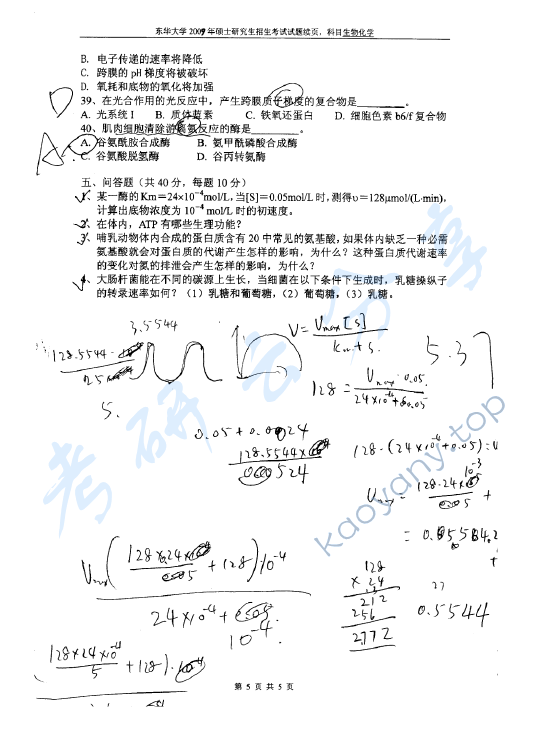 东华大学 2009 年硕士研究生招生考试试题续页，科目生物化学
B. 电子传递的速率将降低
C. 跨膜的 pH 梯度将被破坏
D. 氧耗和底物的氧化将加强
D
39、在光合作用的光反应中，产生跨膜质子梯度的复合物是________。
A. 光系统 I B. 质体蓝素 C. 铁氧还蛋白 D. 细胞色素 b6/f 复合物
40、肌肉细胞清除游离氨反应的酶是________。
A.
A. 谷氨酰胺合成酶 B. 氨甲酰磷酸合成酶
C. 谷氨酸脱氢酶 D. 谷丙转氨酶
五、问答题（共 40 分，每题 10 分）
1、某一酶的 Km＝24×10⁻⁴mol/L，当[S]＝0.05mol/L 时，测得υ＝128μmol/(L·min)，
计算出底物浓度为 10⁻⁴ mol/L 时的初速度。
2、在体内，ATP 有哪些生理功能？
3、哺乳动物体内合成的蛋白质含有 20 中常见的氨基酸，如果体内缺乏一种必需
氨基酸就会对蛋白质的代谢产生怎样的影响，为什么？这种蛋白质代谢速率
的变化对氮的排泄会产生怎样的影响，为什么？
4、大肠杆菌能在不同的碳源上生长，当细菌在以下条件下生成时，乳糖操纵子
的转录速率如何？（1）乳糖和葡萄糖，（2）葡萄糖，（3）乳糖。
3.5544
128.5544
25
5.
V = Vmax [s]
Km + s.
5.37
128 = Vmax 0.05
24×10⁻⁴+0.05
0.05 + 0.0024
128.5544×
524
128·(24×10⁻⁴+0.05)=V
10⁻³
128·24×
5 +
Vmax (128×24× + 128)10⁻⁴
5
24×10⁻⁴ +
10⁻⁴.
128
× 24
212
256
2772
0.5544
(128×24×10⁻⁴ + 128).
5
第 5 页 共 5 页
考研云分享
kaoyany.top